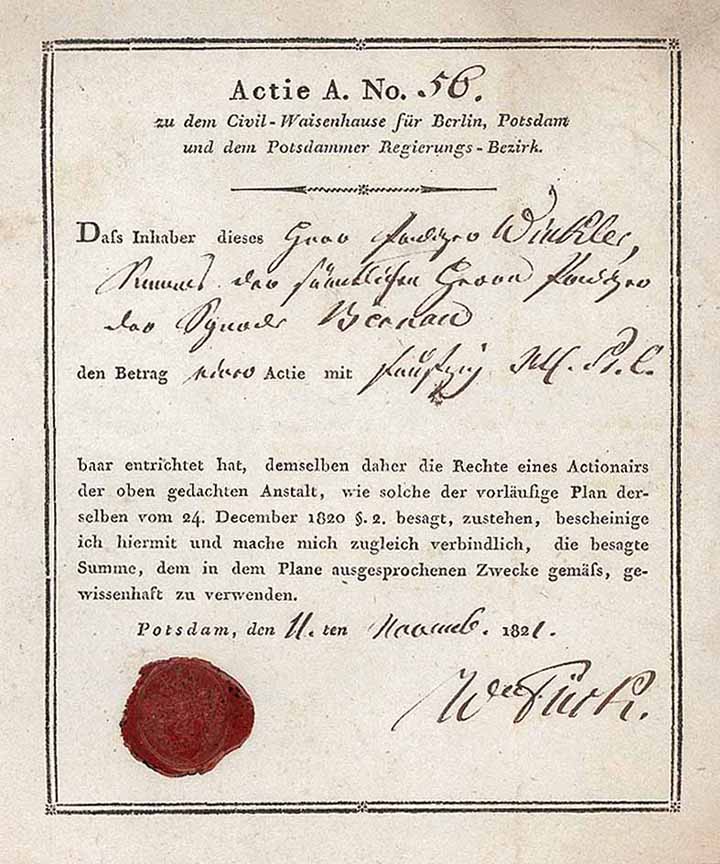 Actie A. No. 56.
zu dem Civil-Waisenhause für Berlin, Potsdam
und dem Potsdammer Regierungs-Bezirk.
Dass Inhaber dieses Herr Prediger Winkler,
Namens der sämtlichen Herrn Prediger
der Synode Bernau
den Betrag einer Actie mit funfzig
baar entrichtet hat, demselben daher die Rechte eines Actionairs
der oben gedachten Anstalt, wie solche der vorläufige Plan der-
selben vom 24. December 1820 §. 2. besagt, zustehen, bescheinige
ich hiermit und mache mich zugleich verbindlich, die besagte
Summe, dem in dem Plane ausgesprochenen Zwecke gemäss, ge-
wissenhaft zu verwenden.
Potsdam, den 11. ten Novemb. 1821.
Türk.